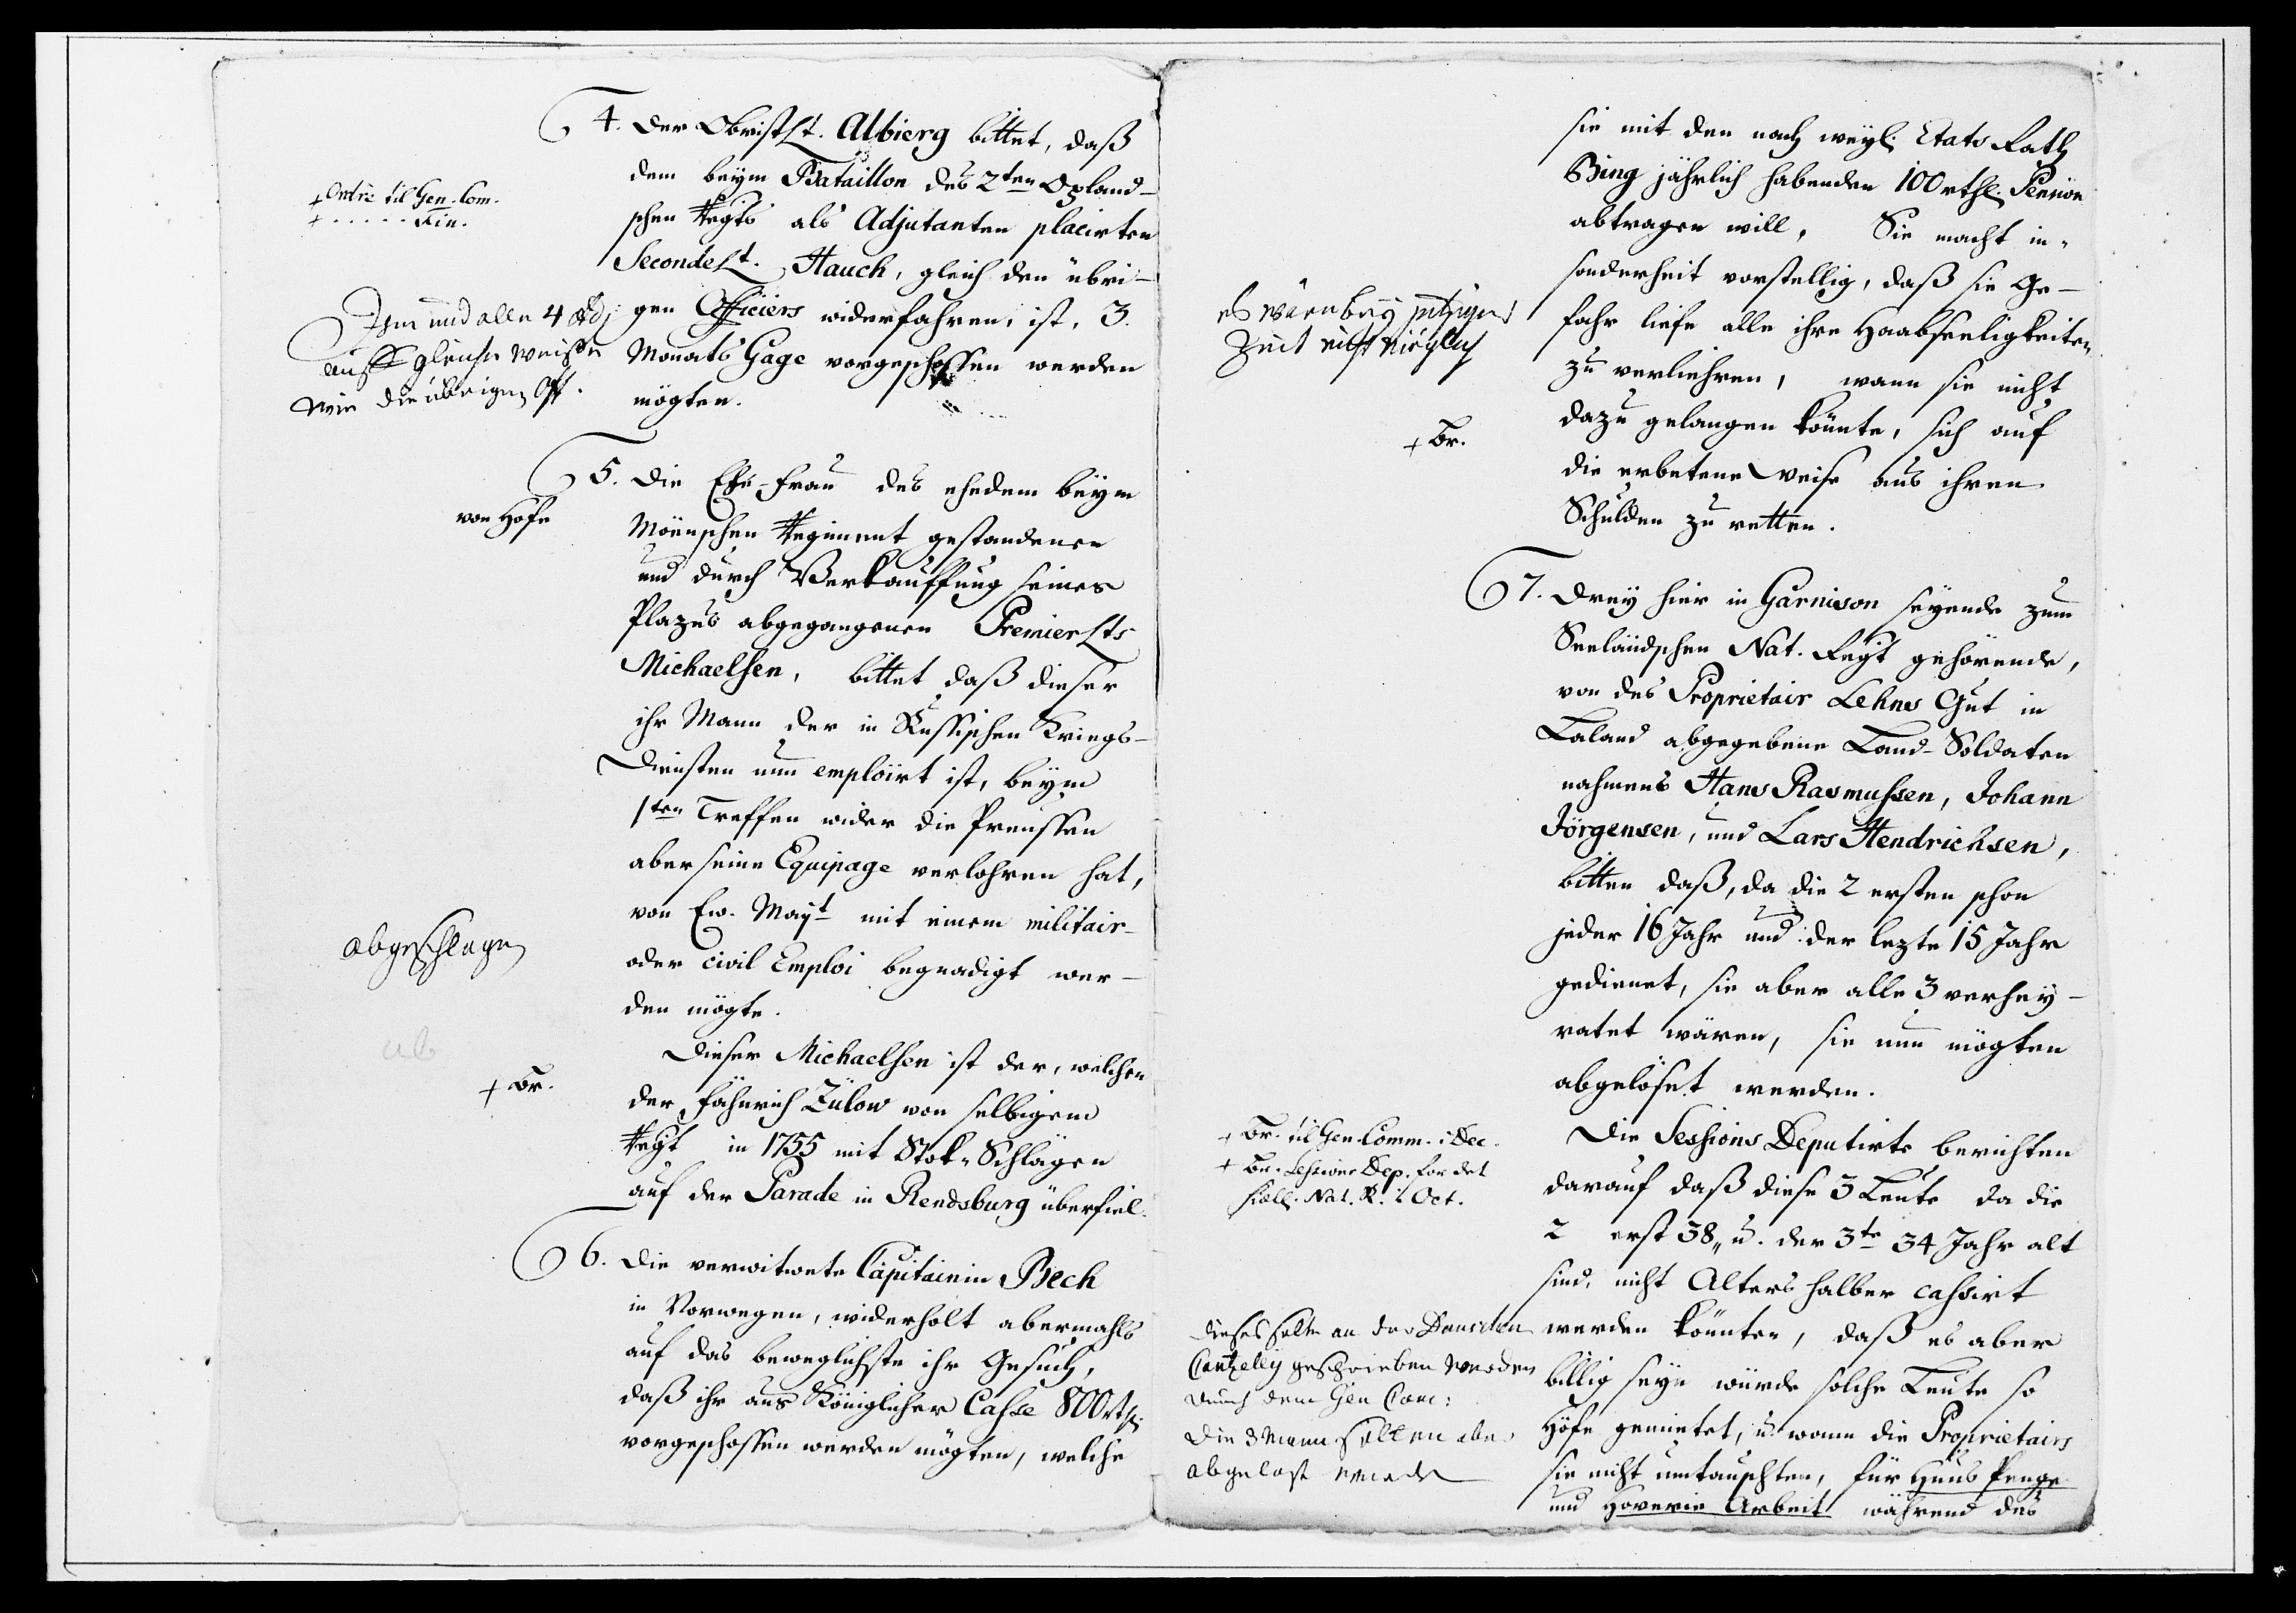 4. Der ObristLt. Albierg bittet, daß
dem beym Bataillon des 2ten Opland-
schen Regts als Adjutanten placirten
SecondeLt. Hauch, gleich den übri-
gen Officiers widerfahren, ist, 3.
Monats Gage vorgeschossen werden
mögten.
+ Ordre til Gen. Com.
+ . . . . . . Fin.
Ihm und allen 4 Adj
auff gleiche weiße
wie die übrigen Off.
5. Die Ehe-Frau des ehedem beym
Möenschen Regiment gestandenen
und durch Verkauffung seines
Plazes abgegangenen PremierLts
Michaelsen, bittet daß dieser
ihr Mann der in Russischen Kriegs-
Diensten nun emploirt ist, beym
1ten Treffen wider die Preussen
aber seine Equipage verlohren hat,
von Ew. Mayt mit einem militair-
oder civil Emploi begnadigt wer-
den mögte.
Dieser Michaelsen ist der, welcher
der Fähnrich Zülow von selbigem
Regt in 1755 mit Stok-Schlägen
auf der Parade in Rendsburg überfiel.
von Hofe
abgeschlagen
ab
+ Br.
6. Die verwitwete Capitainin Bech
in Norwegen, widerholt abermahls
auf das beweglichste ihr Gesuch,
daß ihr aus Königlicher Casse 800 rthl.
vorgeschossen werden mögten, welche
sie mit den nach weyl. Etats Rath
Bing jährlich habenden 100 rthl. Pension
abtragen will, Sie macht in-
sonderheit vorstellig, daß sie Ge-
fahr liefe alle ihre Haabseeligkeiten
zu verliehren, wann sie nicht
dazu gelangen könnte, sich auf
die erbetene Weise aus ihren
Schulden zu retten.
es wäre bey jetziger
Zeit nicht möglich
+ Br.
7. Drey hier in Garnison seyende zum
Seeländschen Nat. Regt gehörende,
von des Proprietair Lehns Gut in
Laland abgegebene Land-Soldaten
nahmens Hans Rasmussen, Johann
Jörgensen, und Lars Hendrichsen,
bitten daß, da die 2 ersten schon
jeder 16 Jahr und der lezte 15 Jahr
gedienet, sie aber alle 3 verhey-
ratet wären, sie nun mögten
abgelöset werden.
Die Sessions Deputirte berichten
darauf daß diese 3 Leute da die
2 erst 38, u. der 3te 34 Jahr alt
sind, nicht Alters halber cassirt
werden könnten, daß es aber
billig seyn würde solche Leute so
Höfe gemietet, u. wann die Proprietairs
sie nicht umtauschten, für Huus Penge
und Hoverie Arbeit während des
+ Br. til Gen. Comm. i Dec.
+ Br. Sessions Dep. for det
Siæll. Nat. R. i Oct.
dieses solte an der Danschen
Cantzelly geschrieben werden
durch dem Gen Com:
Die 3 Mann sollen aber
abgelost werden